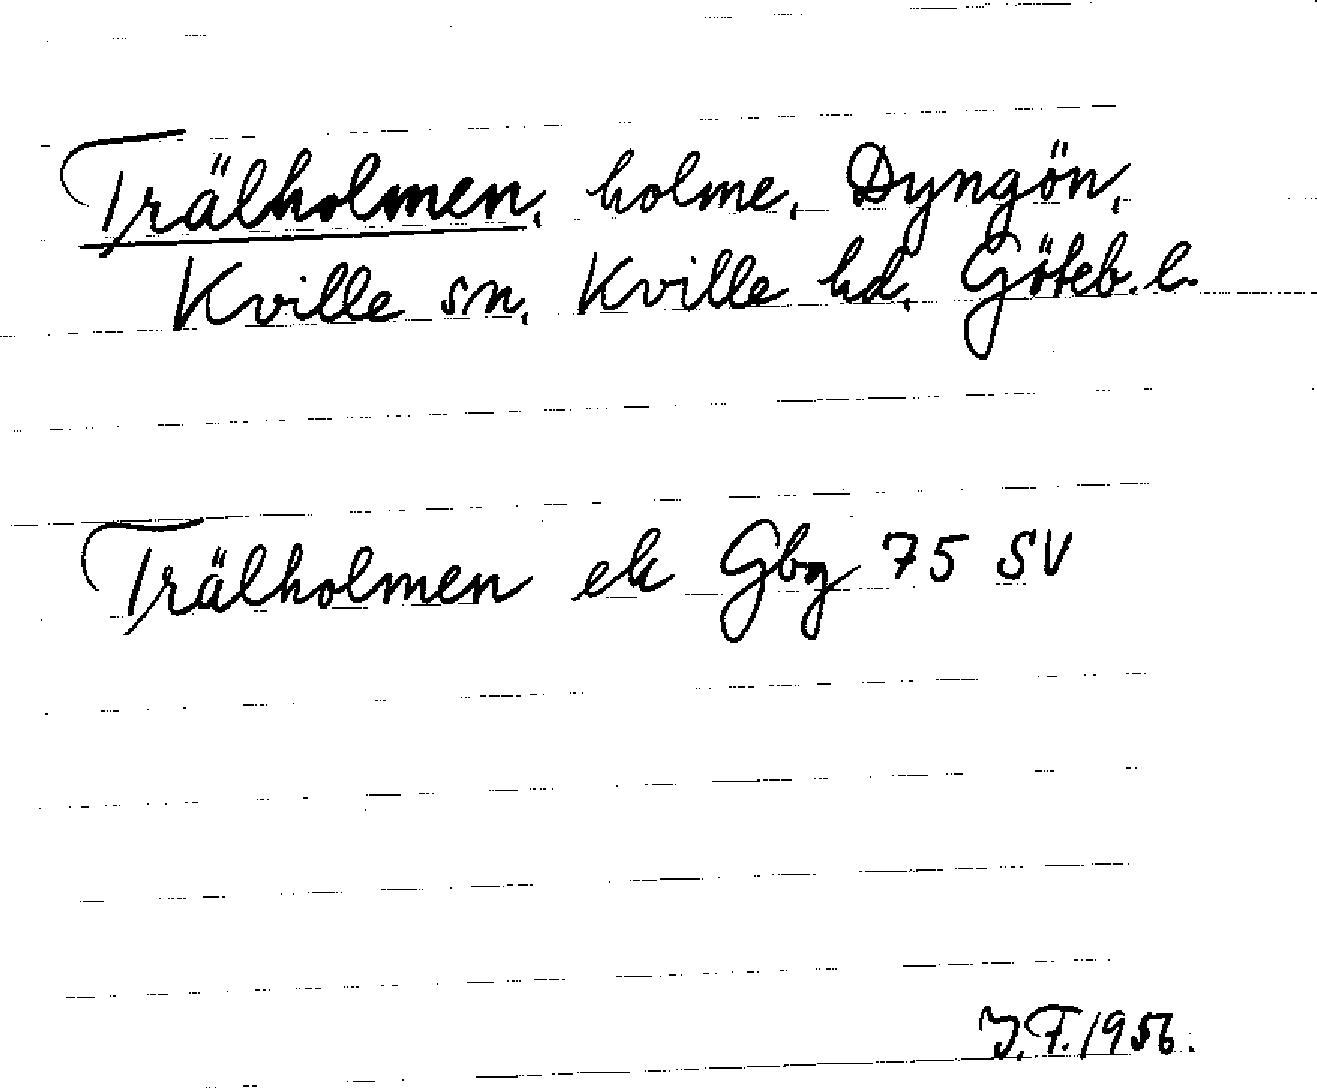 Trälholmen, holme, Dyngön,
Kville sn, Kville hd, Göteb. l.
Trälholmen ek Gbg 75 SV
J.F. 1956.